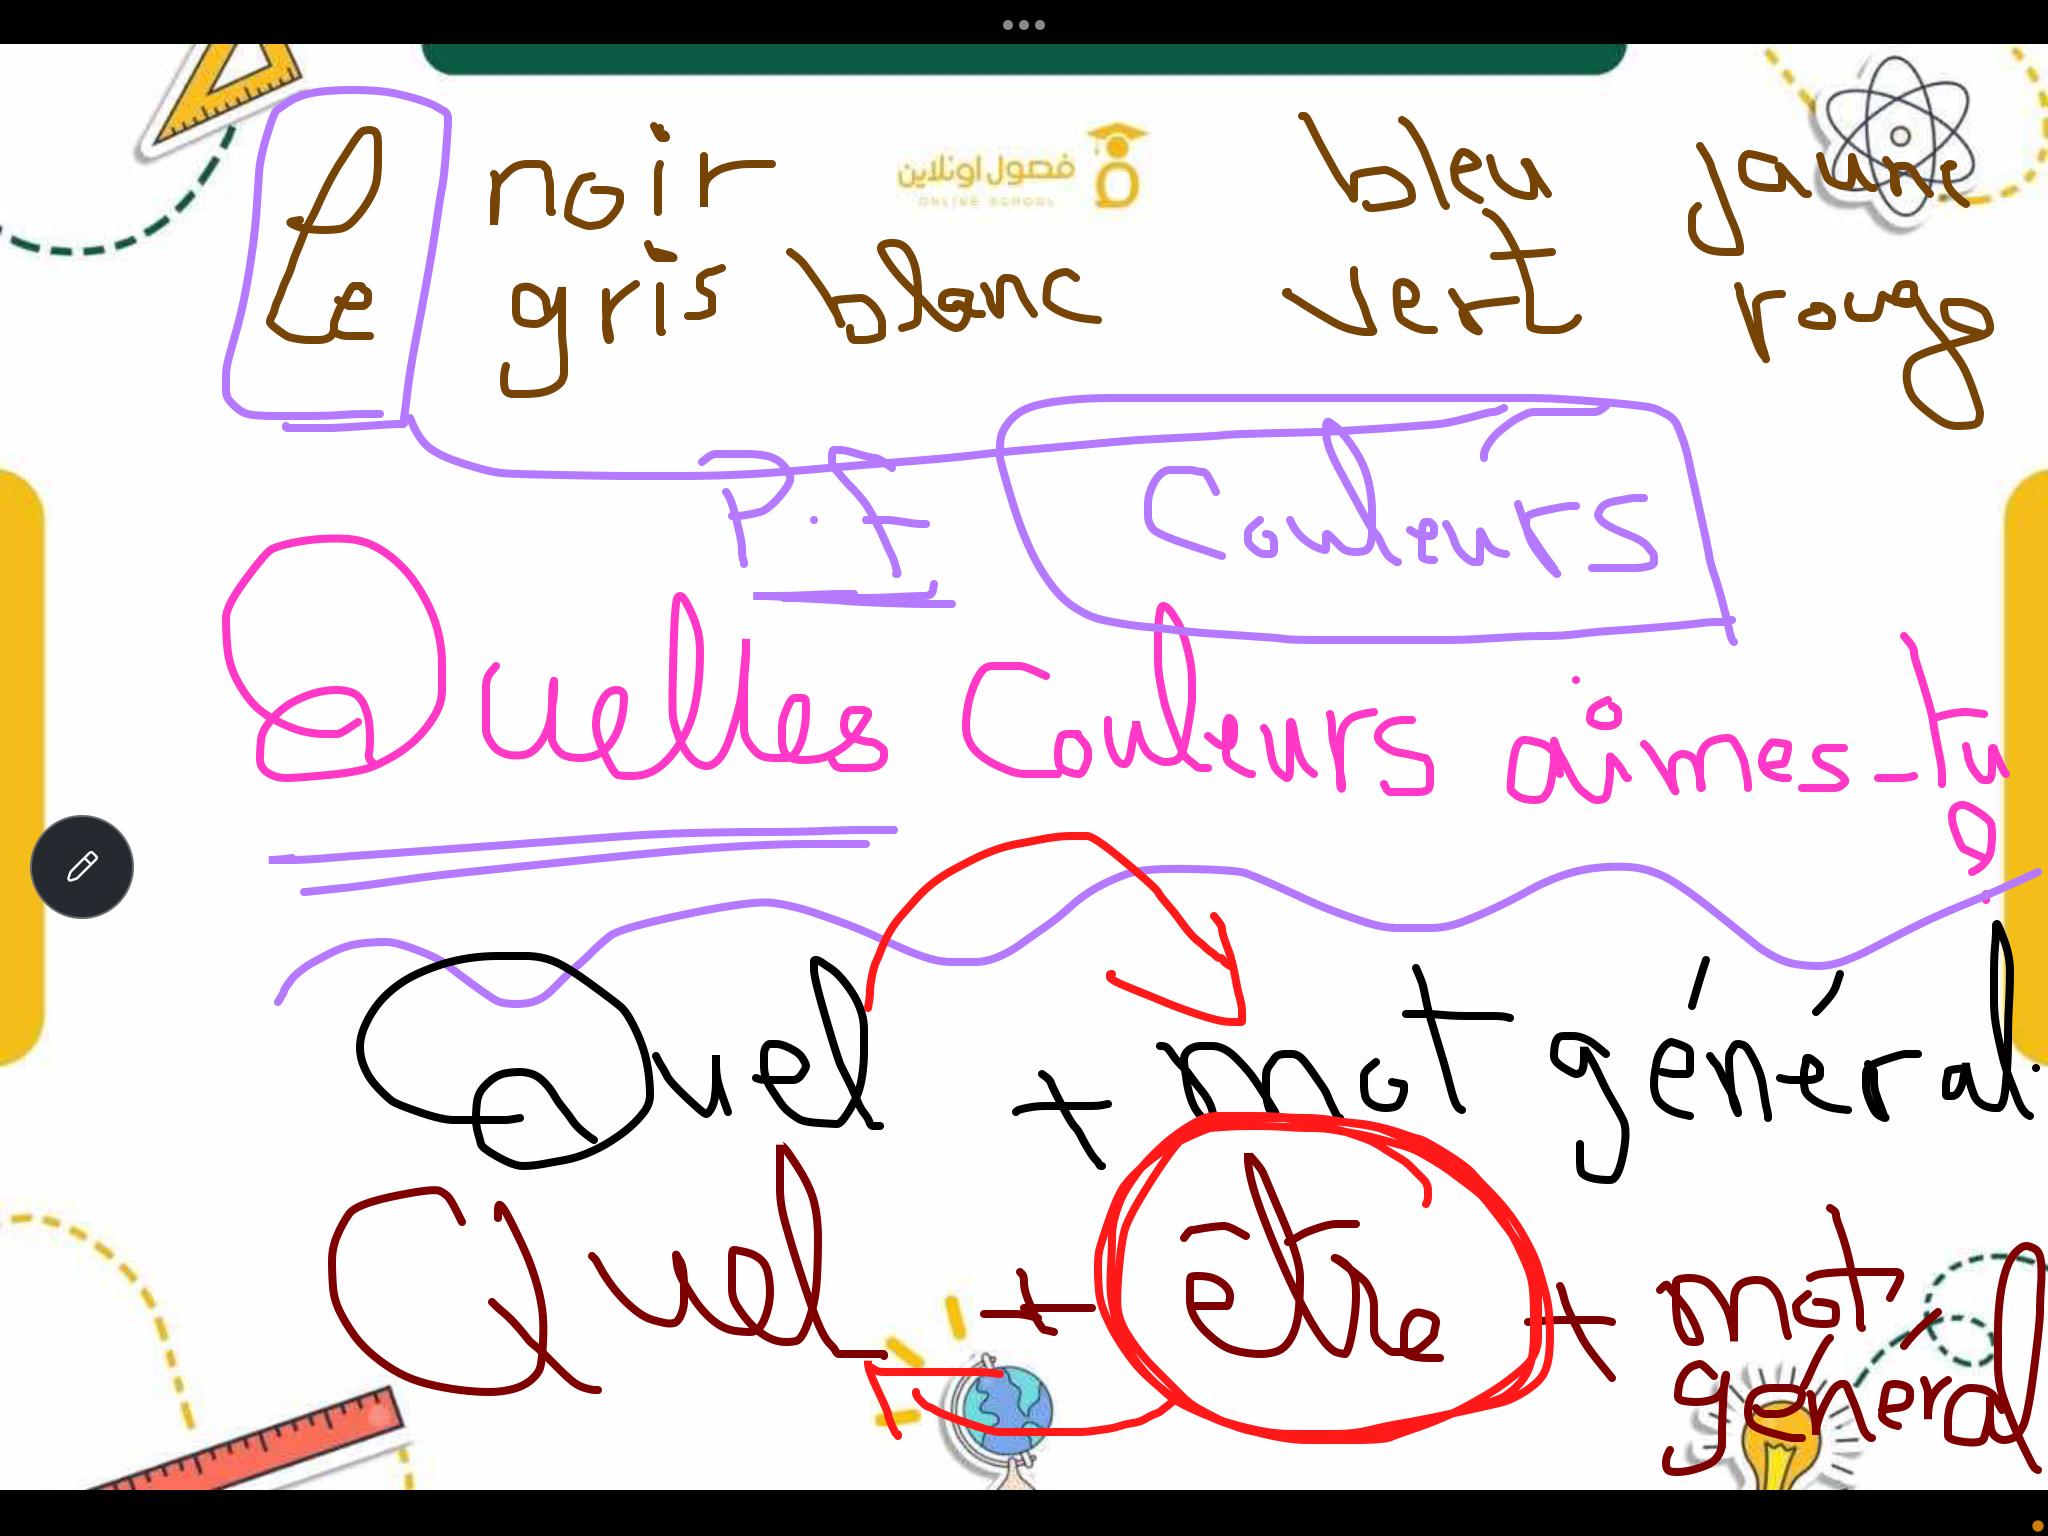 Le noir bleu jaune
gris blanc vert rouge
فصول اونلاين
ONLINE SCHOOL
P.F Couleurs
Quelles Couleurs aimes-tu ?
Quel + mot général.
Quel + être + mot général